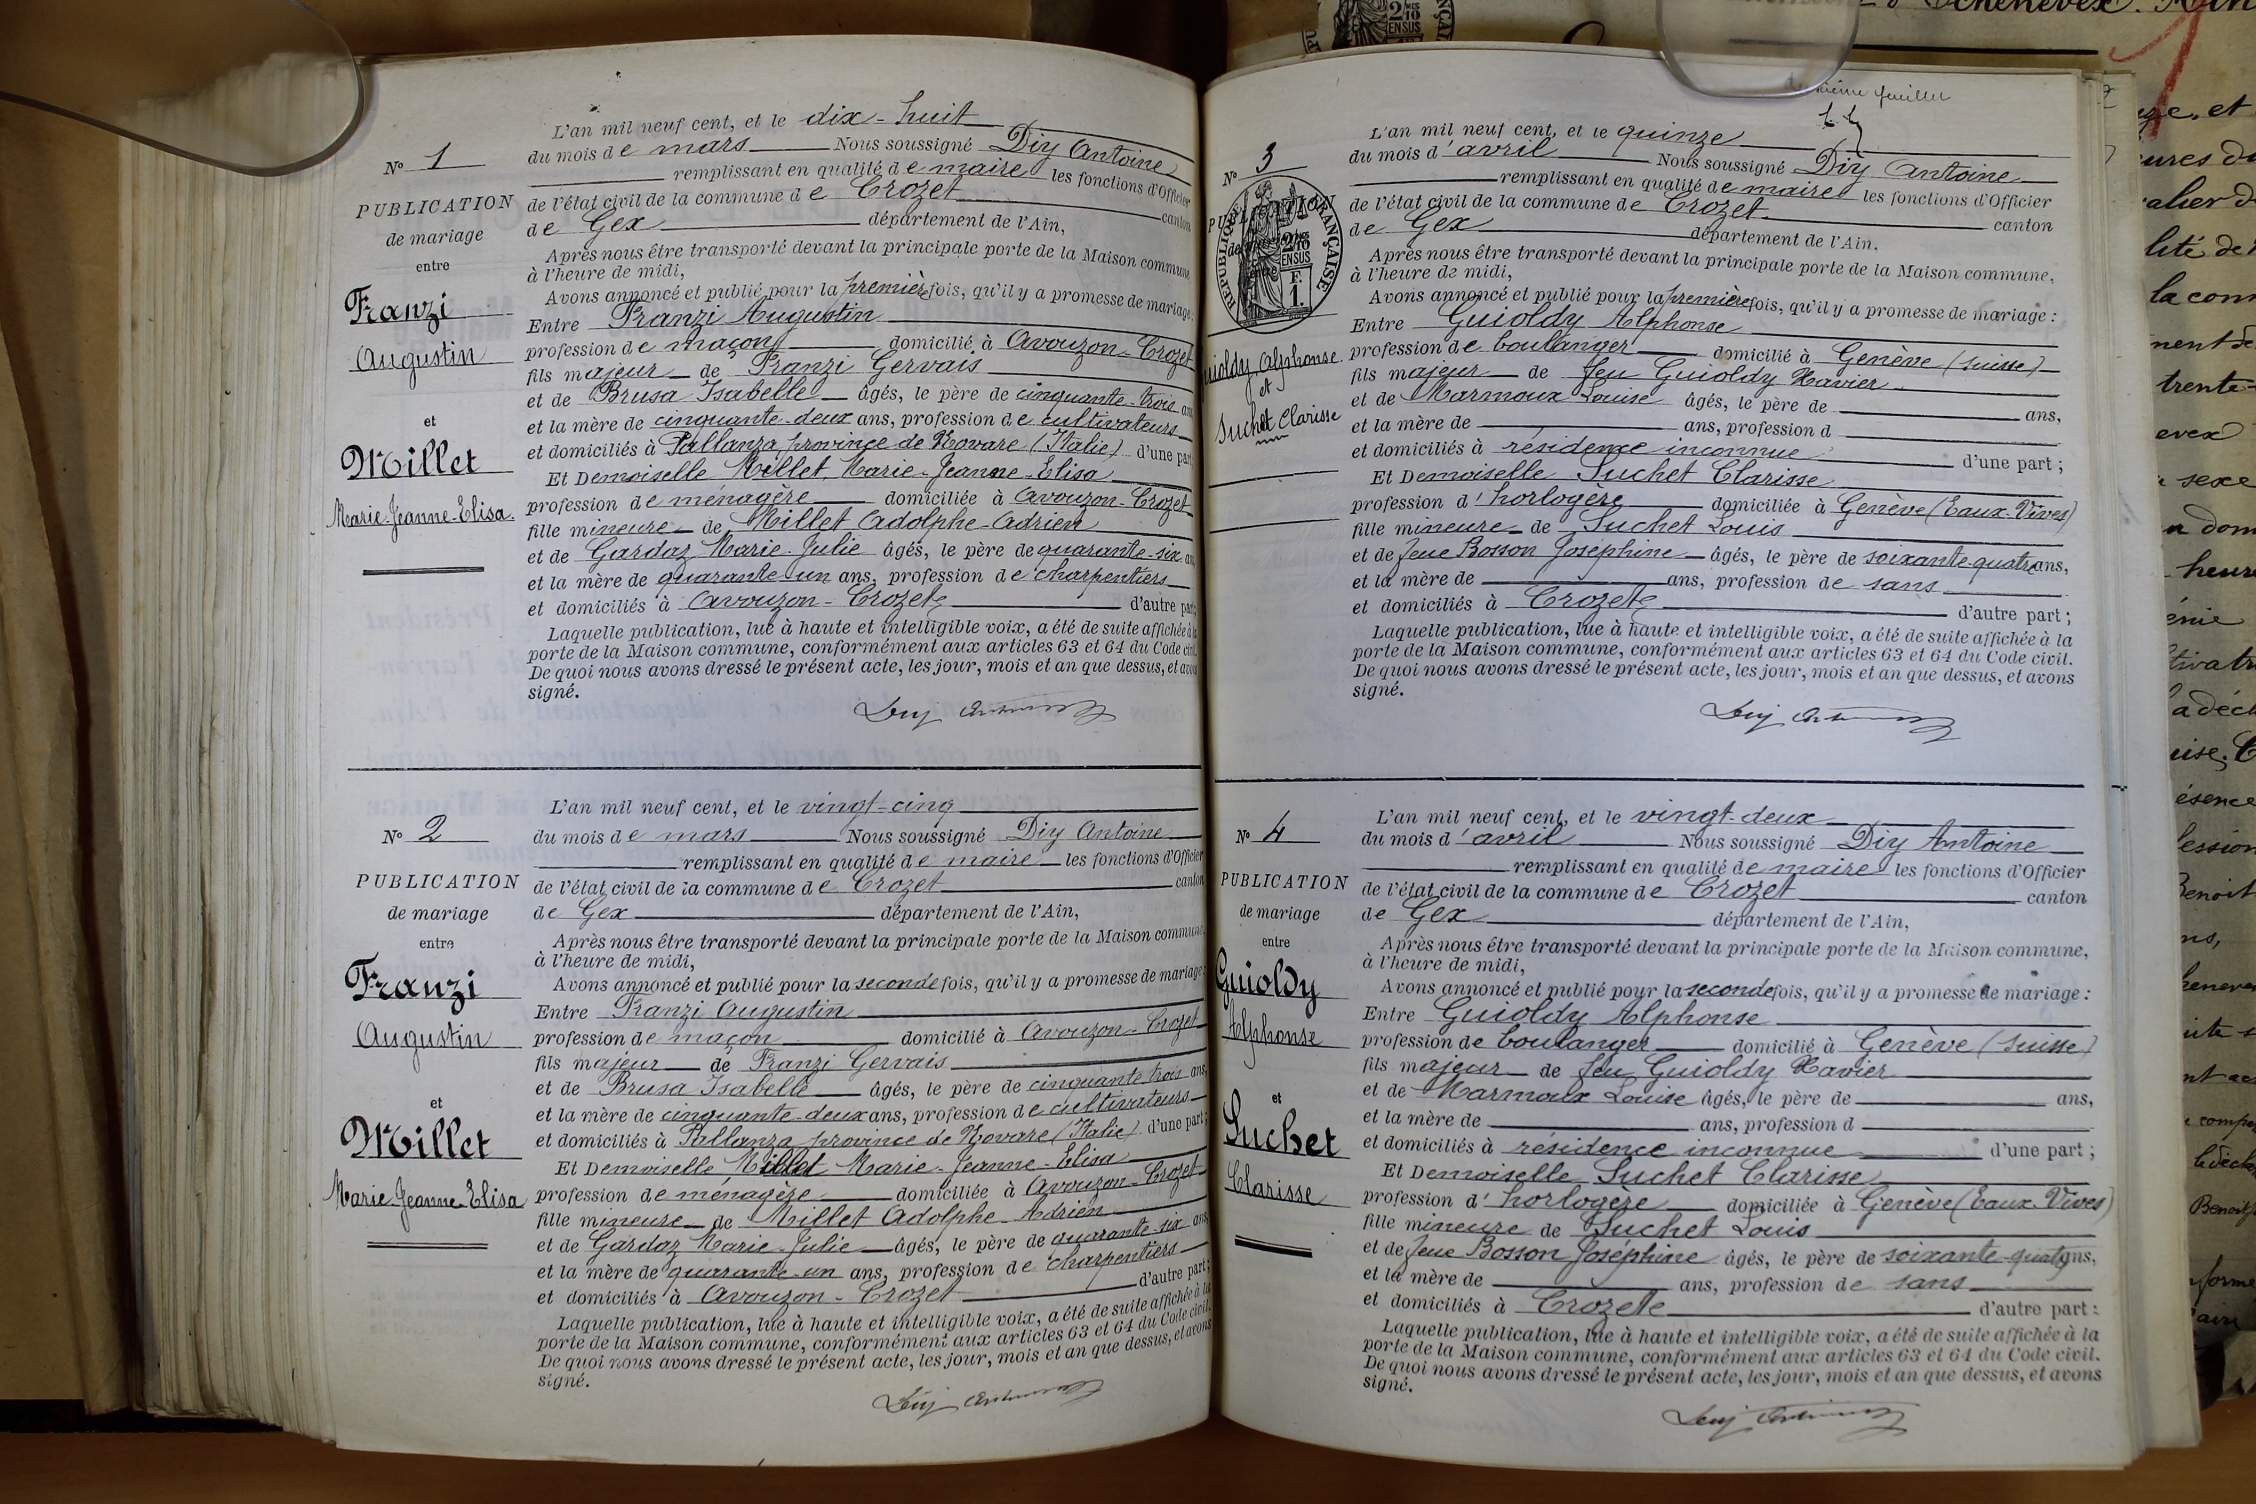 N° 1
PUBLICATION
de mariage
entre
Franzi
Augustin
et
Millet
Marie-Jeanne-Elisa.
L'an mil neuf cent, et le dix-huit
du mois de mars Nous soussigné Diy Antoine
remplissant en qualité de maire les fonctions d'Officier
de l'état civil de la commune de Crozet canton
de Gex département de l'Ain,
Après nous être transporté devant la principale porte de la Maison commune
à l'heure de midi,
Avons annoncé et publié pour la première fois, qu'il y a promesse de mariage:
Entre Franzi Augustin
profession de maçon domicilié à Avouzon-Crozet
fils majeur de Franzi Gervais
et de Brusa Isabelle âgés, le père de cinquante-trois ans
et la mère de cinquante-deux ans, profession de cultivateurs
et domiciliés à Pallanza, province de Novare (Italie) d'une part
Et Demoiselle Millet Marie-Jeanne-Elisa
profession de ménagère domiciliée à Avouzon-Crozet
fille mineure de Millet Adolphe-Adrien
et de Gardaz Marie-Julie âgés, le père de quarante-six ans
et la mère de quarante-un ans, profession de charpentiers
et domiciliés à Avouzon-Crozet d'autre part;
Laquelle publication, lue à haute et intelligible voix, a été de suite affichée à la
porte de la Maison commune, conformément aux articles 63 et 64 du Code civil.
De quoi nous avons dressé le présent acte, les jour, mois et an que dessus, et avons
signé.
Diy Antoine
N° 2
PUBLICATION
de mariage
entre
Franzi
Augustin
et
Millet
Marie-Jeanne-Elisa
L'an mil neuf cent, et le vingt-cinq
du mois de mars Nous soussigné Diy Antoine
remplissant en qualité de maire les fonctions d'Officier
de l'état civil de la commune de Crozet canton
de Gex département de l'Ain,
Après nous être transporté devant la principale porte de la Maison commune,
à l'heure de midi,
Avons annoncé et publié pour la seconde fois, qu'il y a promesse de mariage:
Entre Franzi Augustin
profession de maçon domicilié à Avouzon-Crozet
fils majeur de Franzi Gervais
et de Brusa Isabelle âgés, le père de cinquante trois ans,
et la mère de cinquante-deux ans, profession de cultivateurs
et domiciliés à Pallanza province de Novare (Italie) d'une part;
Et Demoiselle Millet Marie-Jeanne-Elisa
profession de ménagère domiciliée à Avouzon-Crozet
fille mineure de Millet Adolphe-Adrien
et de Gardaz Marie-Julie âgés, le père de quarante-six ans,
et la mère de quarante-un ans, profession de charpentiers
et domiciliés à Avouzon-Crozet d'autre part;
Laquelle publication, lue à haute et intelligible voix, a été de suite affichée à la
porte de la Maison commune, conformément aux articles 63 et 64 du Code civil.
De quoi nous avons dressé le présent acte, les jour, mois et an que dessus, et avons
signé.
Diy Antoine
feuillet
N° 3
PUBLICATION
RÉPUBLIQUE FRANÇAISE
2/10
EN SUS
F.
1.
Guioldy, Alphonse.
et
Suchet Clarisse
L'an mil neuf cent, et le quinze
du mois d'avril Nous soussigné Diy Antoine
remplissant en qualité de maire les fonctions d'Officier
de l'état civil de la commune de Crozet canton
de Gex département de l'Ain.
Après nous être transporté devant la principale porte de la Maison commune,
à l'heure de midi,
Avons annoncé et publié pour la première fois, qu'il y a promesse de mariage:
Entre Guioldy Alphonse
profession de boulanger domicilié à Genève (Suisse)
fils majeur de feu Guioldy Xavier
et de Marmoux Louise âgés, le père de ans,
et la mère de ans, profession d
et domiciliés à résidence inconnue d'une part;
Et Demoiselle Suchet Clarisse
profession d'horlogère domiciliée à Genève (Eaux-Vives)
fille mineure de Suchet Louis
et de feue Bosson Joséphine âgés, le père de soixante-quatre ans,
et la mère de ans, profession de sans
et domiciliés à Crozet d'autre part;
Laquelle publication, lue à haute et intelligible voix, a été de suite affichée à la
porte de la Maison commune, conformément aux articles 63 et 64 du Code civil.
De quoi nous avons dressé le présent acte, les jour, mois et an que dessus, et avons
signé.
Diy Antoine
N° 4
PUBLICATION
de mariage
entre
Guioldy
Alphonse
et
Suchet
Clarisse
L'an mil neuf cent, et le vingt-deux
du mois d'avril Nous soussigné Diy Antoine
remplissant en qualité de maire les fonctions d'Officier
de l'état civil de la commune de Crozet canton
de Gex département de l'Ain,
Après nous être transporté devant la principale porte de la Maison commune,
à l'heure de midi,
Avons annoncé et publié pour la seconde fois, qu'il y a promesse de mariage:
Entre Guioldy Alphonse
profession de boulanger domicilié à Genève (Suisse)
fils majeur de feu Guioldy Xavier
et de Marmoux Louise âgés, le père de ans,
et la mère de ans, profession d
et domiciliés à résidence inconnue d'une part;
Et Demoiselle Suchet Clarisse
profession d'horlogère domiciliée à Genève (Eaux-Vives)
fille mineure de Suchet Louis
et de feue Bosson Joséphine âgés, le père de soixante-quatre ans,
et la mère de ans, profession de sans
et domiciliés à Crozet d'autre part:
Laquelle publication, lue à haute et intelligible voix, a été de suite affichée à la
porte de la Maison commune, conformément aux articles 63 et 64 du Code civil.
De quoi nous avons dressé le présent acte, les jour, mois et an que dessus, et avons
signé.
Diy Antoine